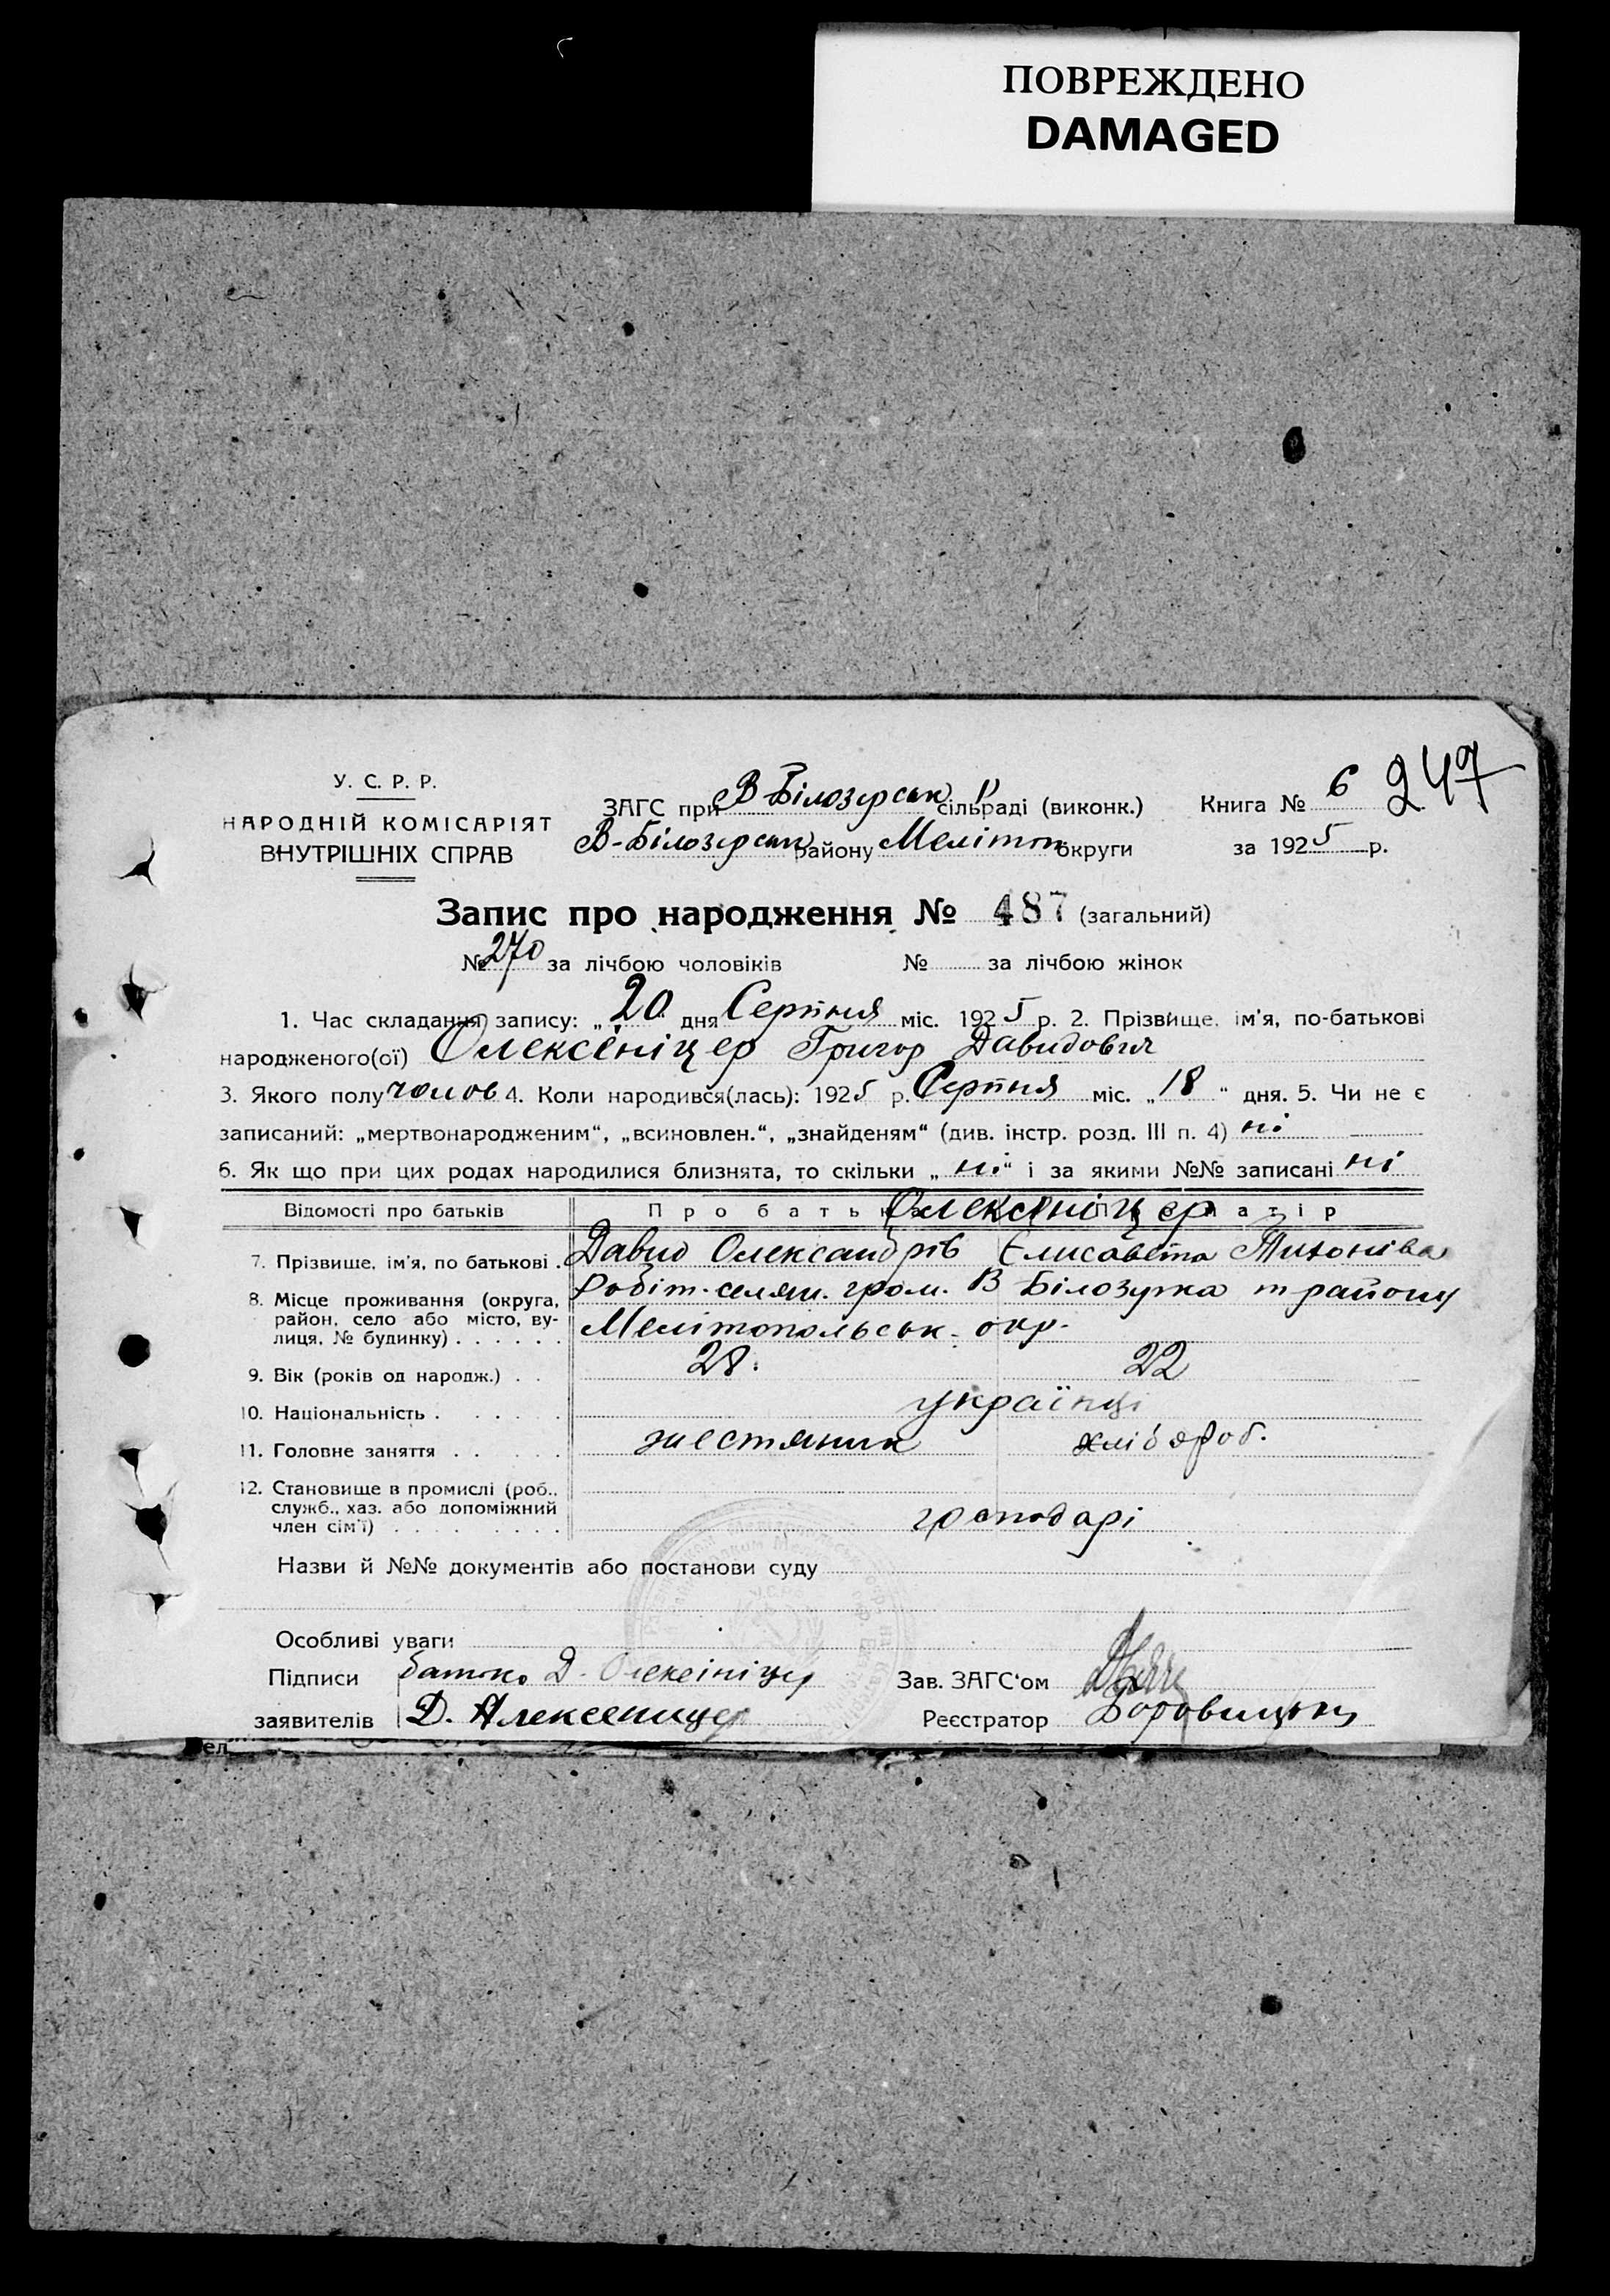 ПОВРЕЖДЕНО
DAMAGED
У. С. Р. Р.
НАРОДНІЙ КОМІСАРІЯТ
ВНУТРІШНІХ СПРАВ
ЗАГС при В-Білозерськ сільраді (виконк.)
В-Білозерськ району Мелітоп округи
Книга № 6 247
за 1925 р.
Запис про народження № 487 (загальний)
№ 270 за лічбою чоловіків № за лічбою жінок
1. Час складання запису: „20“ дня Серпня міс. 1925 р. 2. Прізвище, ім'я, по-батькові
народженого(ої) Олексеніцер Григор Давидович
3. Якого полу чолов 4. Коли народився(лась): 1925 р. Серпня міс. „18“ дня. 5. Чи не є
записаний: „мертвонародженим“, „всиновлен.“, „знайденям“ (див. інстр. розд. III п. 4) ні
6. Як що при цих родах народилися близнята, то скільки „ні“ і за якими №№ записані ні
Відомості про батьків Про батька Про матір
Олексеніцер
7. Прізвище, ім'я, по батькові . Давид Олександрів Єлисавета Тихонівна
8. Місце проживання (округа, район, село або місто, вулиця, № будинку) . . . . . . Робіт. селян. гром. В Білозурка т району
Мелітопольськ. окр.
9. Вік (років од народж.) . . 28. 22
10. Національність . . . . . . українці
11. Головне заняття . . . . . жестяник хлібороб.
12. Становище в промислі (роб., служб., хаз. або допоміжний член сім'ї) . . . . . . . . господарі
Назви й №№ документів або постанови суду
Особливі уваги
Підписи батько Д. Олексініцер
заявителів Д. Алексеницер
Зав. ЗАГС'ом
Реєстратор